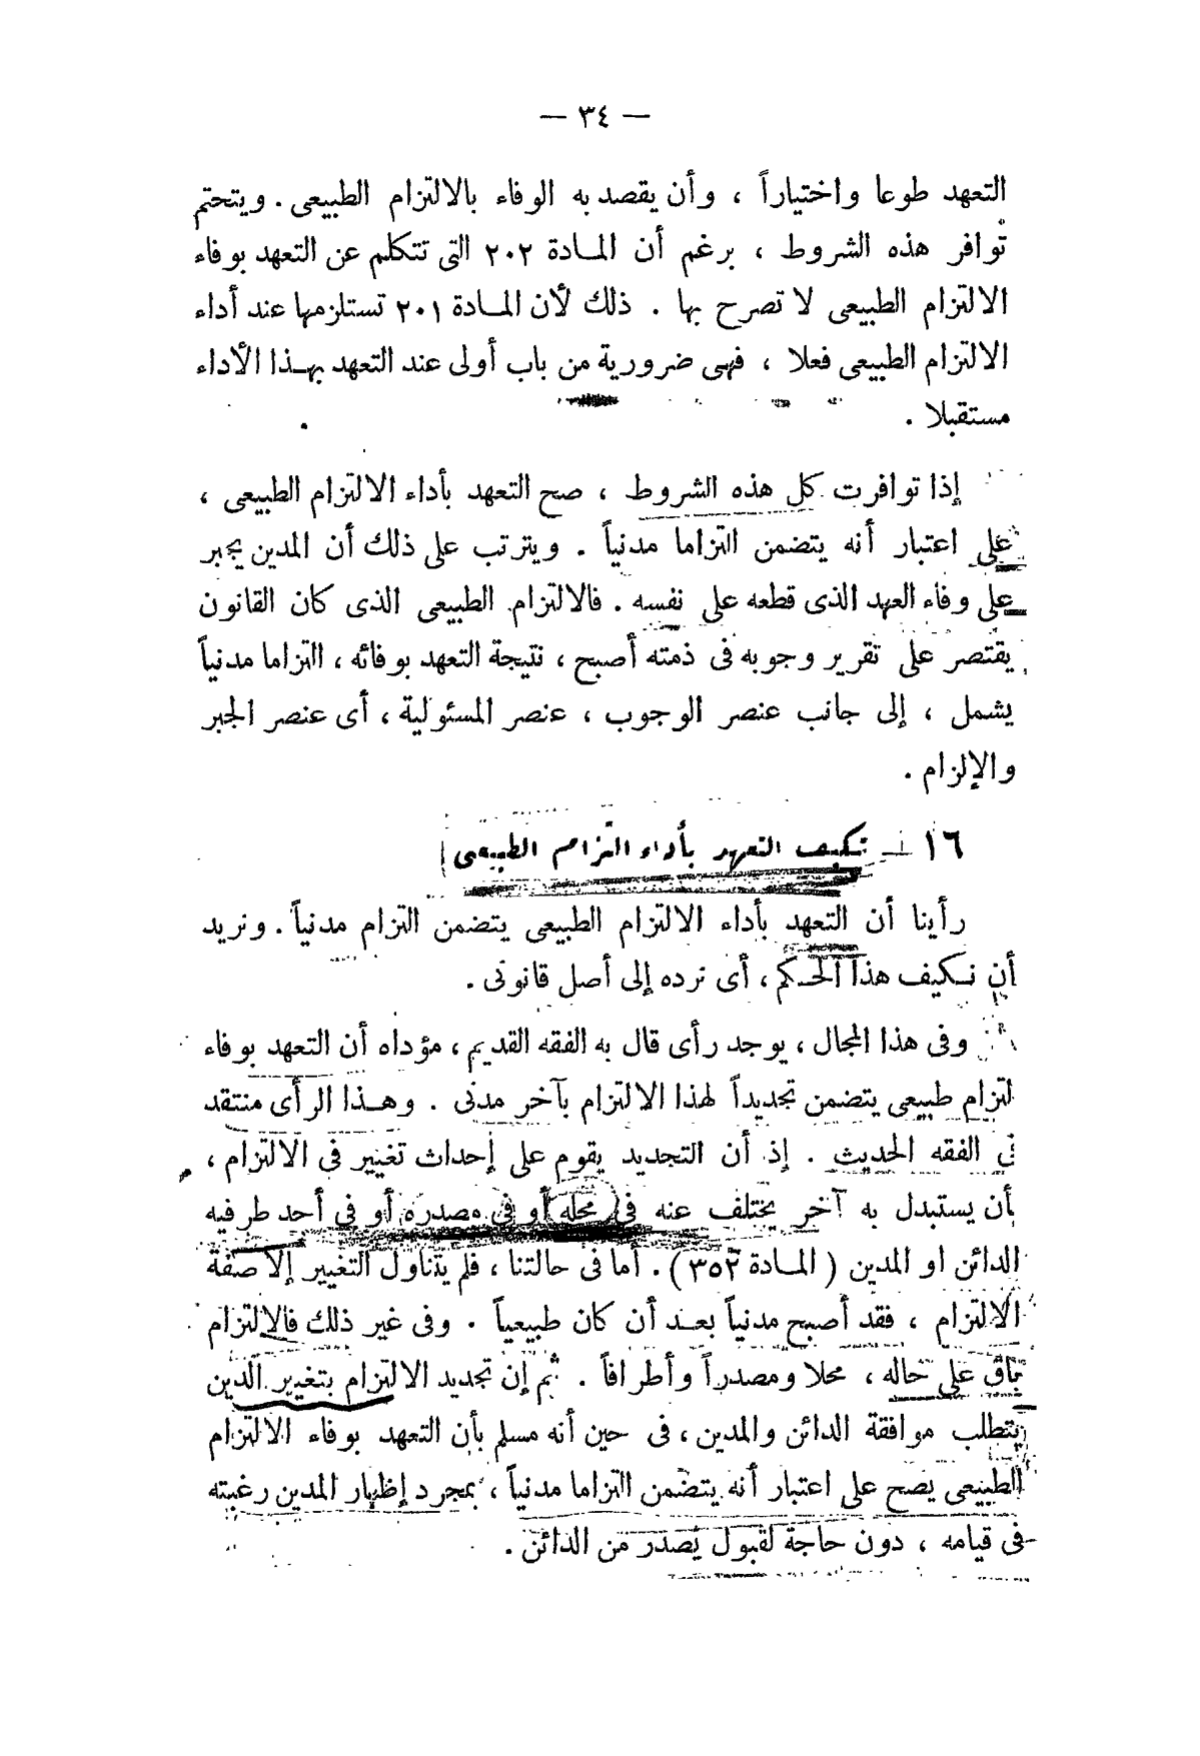 — ٣٤ —
التعهد طوعا واختياراً ، وأن يقصد به الوفاء بالالتزام الطبيعى . ويتحتم
توافر هذه الشروط ، برغم أن المادة ٢٠٢ التى تتكلم عن التعهد بوفاء
الالتزام الطبيعى لا تصرح بها . ذلك لأن المادة ٢٠١ تستلزمها عند أداء
الالتزام الطبيعى فعلا ، فهى ضرورية من باب أولى عند التعهد بهذا الأداء
مستقبلا .
إذا توافرت كل هذه الشروط ، صح التعهد بأداء الالتزام الطبيعى ،
على اعتبار أنه يتضمن التزاما مدنياً . ويترتب على ذلك أن المدين يجبر
على وفاء العهد الذى قطعه على نفسه . فالالتزام الطبيعى الذى كان القانون
يقتصر على تقرير وجوبه فى ذمته أصبح ، نتيجة التعهد بوفائه ، التزاما مدنياً
يشمل ، إلى جانب عنصر الوجوب ، عنصر المسئولية ، أى عنصر الجبر
والإلزام .
١٦ — تكييف التعهد بأداء التزام الطبيعى
رأينا أن التعهد بأداء الالتزام الطبيعى يتضمن التزام مدنياً . ونريد
أن نكيف هذا الحكم ، أى نرده إلى أصل قانونى .
وفى هذا المجال ، يوجد رأى قال به الفقه القديم ، مؤداه أن التعهد بوفاء
لتزام طبيعى يتضمن تجديداً لهذا الالتزام بآخر مدنى . وهذا الرأى منتقد
فى الفقه الحديث . إذ أن التجديد يقوم على إحداث تغيير فى الالتزام ،
بأن يستبدل به آخر يختلف عنه فى محله أو فى مصدره أو فى أحد طرفيه
الدائن او المدين ( المادة ٣٥٢ ) . أما فى حالتنا ، فلم يتناول التغيير إلا صفة
الالتزام ، فقد أصبح مدنياً بعد أن كان طبيعياً . وفى غير ذلك فالالتزام
باق على حاله ، محلا ومصدراً وأطرافاً . ثم إن تجديد الالتزام بتغيير الدين
يتطلب موافقة الدائن والمدين ، فى حين أنه مسلم بأن التعهد بوفاء الالتزام
الطبيعى يصح على اعتبار أنه يتضمن التزاما مدنياً ، بمجرد إظهار المدين رغبته
فى قيامه ، دون حاجة لقبول يصدر من الدائن .